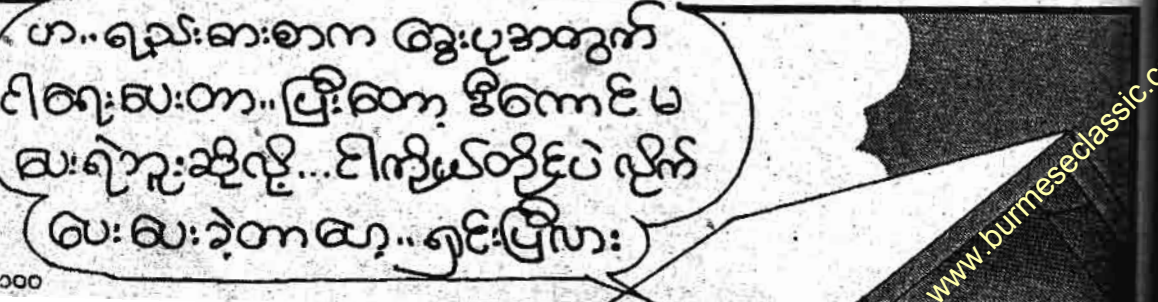 ဟာ..ရည်းစားစာက ခွေးပုအတွက်
ငါရေးပေးတာ..ပြီးတော့ ဒီကောင် မ
ပေးရဲဘူးဆိုလို့...ငါကိုယ်တိုင်ပဲ လိုက်
ပေး ပေးခဲ့တာဟေ့..ရှင်းပြီလား
www.burmeseclassic.c